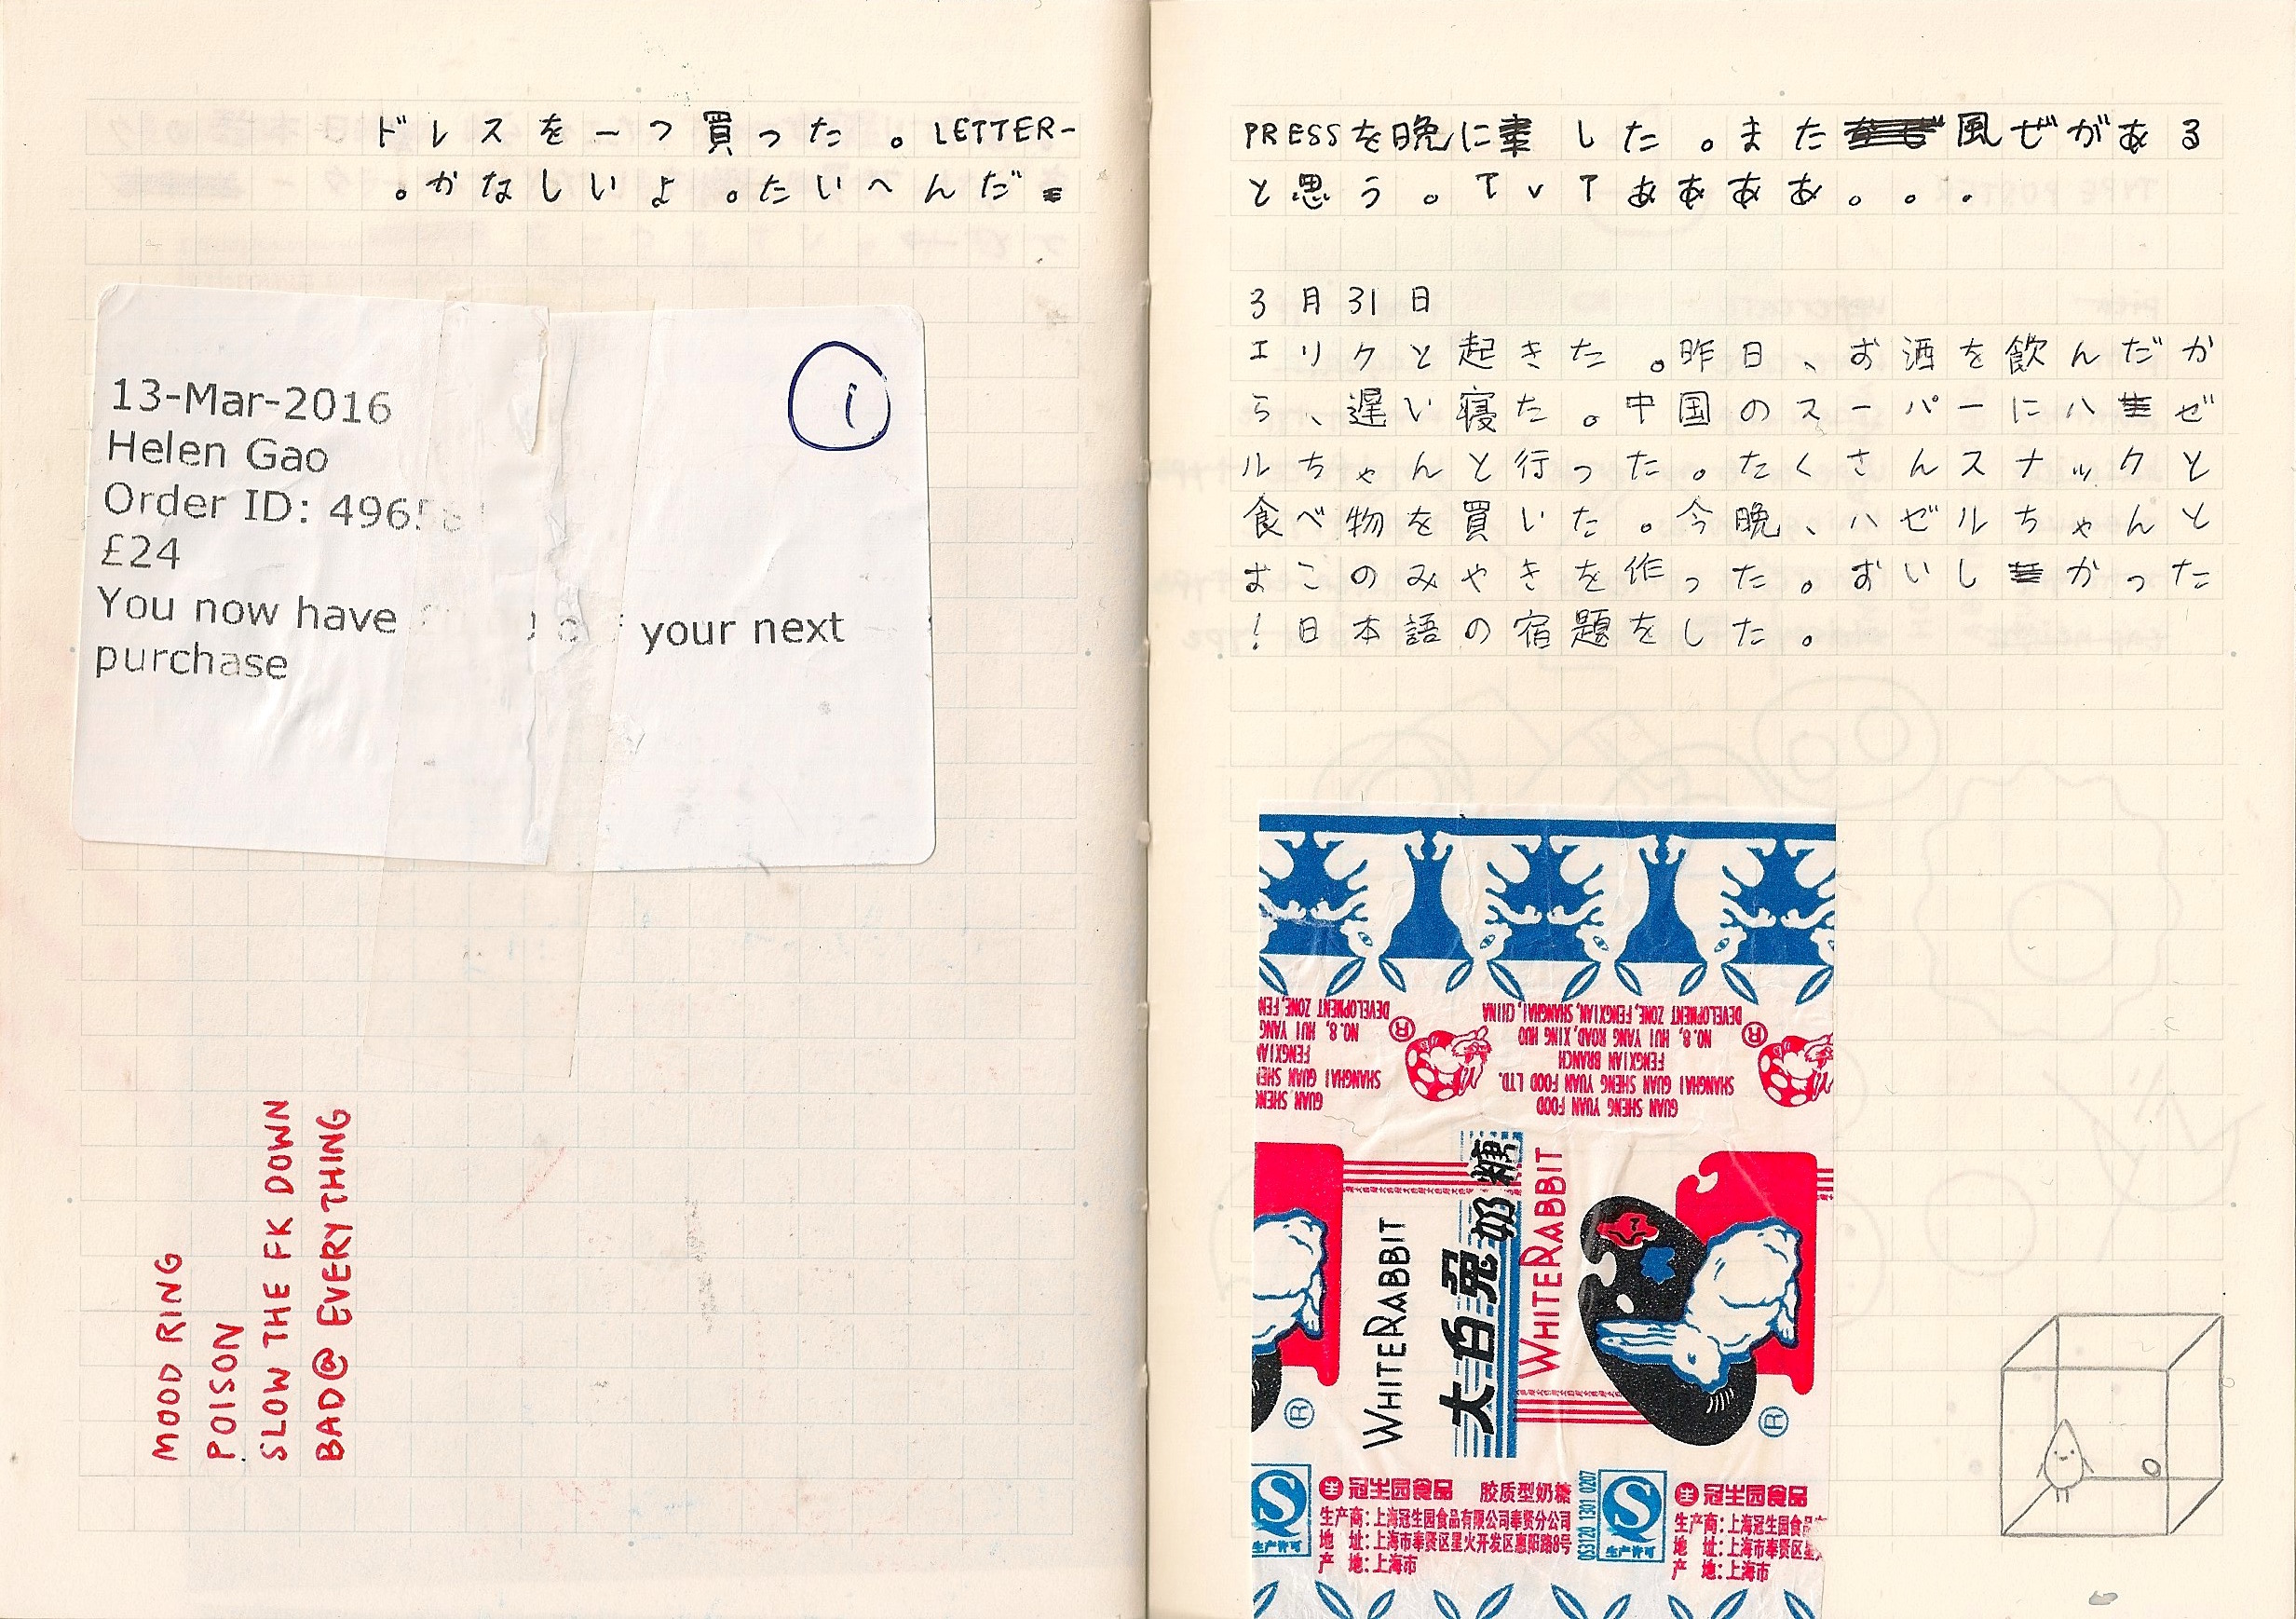 ドレスを一つ買った。LETTER-
。かなしいよ。たいへんだ
13-Mar-2016
Helen Gao
Order ID: 496
£24
You now have your next
purchase
i
MOOD RING
POISON
SLOW THE FK DOWN
BAD@ EVERYTHING
PRESSを晩にした。また風ぜがある
と思う。TvTああああ。。.
3月31日
エリクと起きた。昨日、お酒を飲んだか
ら、遅い寝た。中国のスーパーにハゼ
ルちゃんと行った。たくさんスナックと
食べ物を買いた。今晩、ハゼルちゃんと
おこのみやきを作った。おいしかった
!日本語の宿題をした。
GUAN SHENG
SHANGHAI GUAN SHE
FENGXIAN
NO.8, HUI YANG
DEVELOPMENT ZONE, FEN
®
GUAN SHENG YUAN FOOD
SHANGHAI GUAN SHENG YUAN FOOD LTD.
FENGXIAN BRANCH
NO.8, HUI YANG ROAD, XING HUO
DEVELOPMENT ZONE, FENGXIAN, SHANGHAI, CHINA
®
WHITE RABBIT
大白兔奶糖
WHITE RABBIT
®
®
生产许可
冠生园食品 胶质型奶糖
生产商:上海冠生园食品有限公司奉贤分公司
地 址:上海市奉贤区星火开发区惠阳路8号
产 地:上海市
QS3120 1301 0207
生产许可
冠生园食品
生产商:上海冠生园食品
地 址:上海市奉贤区星
产 地:上海市